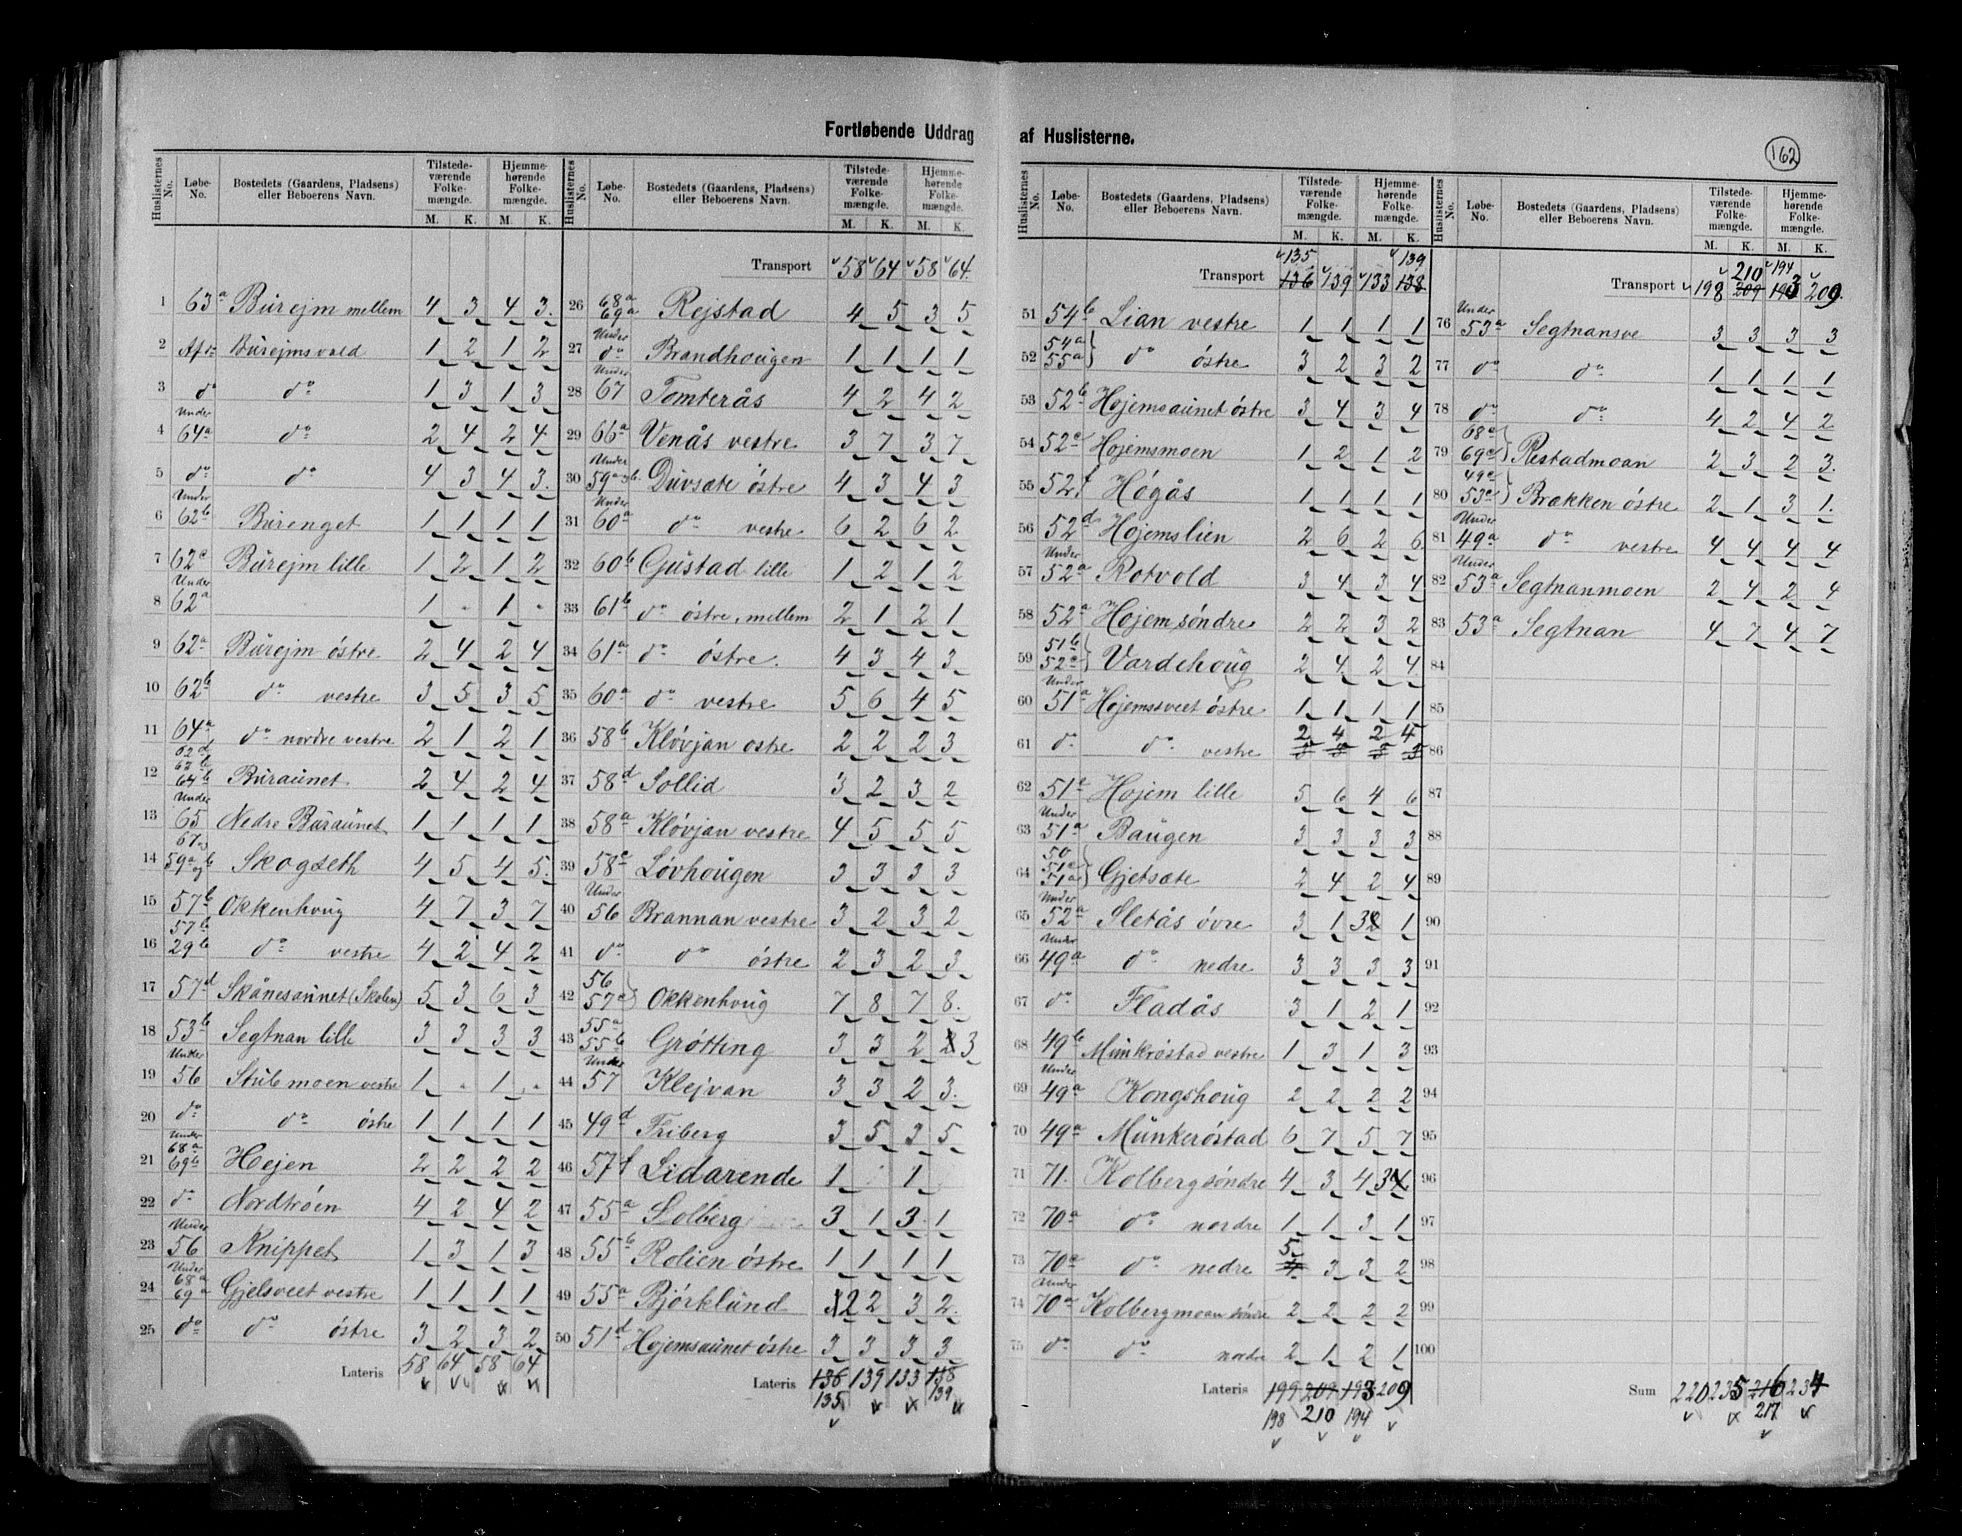 Fortløbende Uddrag af Huslisterne.
162
Huslisternes No. Løbe-No. Bostedets (Gaardens, Pladsens) eller Beboerens Navn. Tilstedeværende Folkemængde. M. K. Hjemmehørende Folkemængde. M. K.
1 63a Burejm mellem 4 3 4 3.
2 Af do Burejmsvald 1 2 1 2
3 do do 1 3 1 3
4 Under 64a do 2 4 2 4
5 do do 4 3 4 3.
6 Under 62b Burenget 1 1 1 1
7 62c Burejm lille 1 2 1 2
8 Under 62a 1 - 1 -
9 62a Burejm östre 2 4 2 4
10 62b do vestre 3 5 3 5
11 64a do nordre vestre 2 1 2 1
12 62d 62b 64b Buraunet 2 4 2 4
13 Under 65 Nedre Buraunet 1 1 1 1
14 67 og 59a og b Skogseth 4 5 4 5.
15 57b Okkenhoug 4 7 3 7
16 57b 29b do vestre 4 2 4 2
17 57d Skånesaunet (Skolen) 5 3 6 3
18 53b Segtnan lille 3 3 3 3
19 Under 56 Stubmoen vestre 1 - 1 -
20 do do östre 1 1 1 1
21 Under 68a 69b Hejen 2 2 2 2
22 do Nordtrøen 4 2 4 2
23 Under 56 Knippet 1 3 1 3
24 Under 68a 69a Gjelsveet vestre 1 1 1 1
25 do do östre 3 2 3 2
Lateris 58 64 58 64
Huslisternes No. Løbe-No. Bostedets (Gaardens, Pladsens) eller Beboerens Navn. Tilstedeværende Folkemængde. M. K. Hjemmehørende Folkemængde. M. K.
Transport 58 64 58 64
26 68a 69a Rejstad 4 5 3 5
27 Under do Brandhougen 1 1 1 1
28 Under 67 Tomterås 4 2 4 2
29 66a Venås vestre 3 7 3 7
30 Under 59a og b Duvsæte östre 4 3 4 3
31 Under 60a do vestre 6 2 6 2
32 60b Gustad lille 1 2 1 2
33 61b do östre, mellem 2 1 2 1
34 61a do östre. 4 3 4 3
35 60a do vestre 5 6 4 5
36 58b Kløvjan ostre 2 2 2 3
37 58d Sollid 3 2 3 2
38 58a Kløvjan vestre 4 5 5 5
39 58c Løvhougen 3 3 3 3
40 Under 56 Brannan vestre 3 2 3 2
41 do do östre 2 3 2 3
42 56 57a Okkenhoug 7 8 7 8.
43 55a 55b Grøtting 3 3 2 2 3
44 Under 57 Klejvan 3 3 2 3.
45 49d Friberg 3 5 3 5
46 57f Lidarende 1 1
47 55a Solberg 3 1 3 1
48 55b Rolien östre 1 1 1 1
49 55a Bjørklund 2 2 3 2.
50 51d Hojemsaunet östre 3 3 3 3
Lateris 136 139 133 138
135 139
Huslisternes No. Løbe-No. Bostedets (Gaardens, Pladsens) eller Beboerens Navn. Tilstedeværende Folkemængde. M. K. Hjemmehørende Folkemængde. M. K.
135 139
Transport 136 139 133 138
51 54b Lian vestre 1 1 1 1
52 54a 55a do östre 3 2 3 2
53 52b Hojemsaunet östre 3 4 3 4
54 52e Hojemsmoen 1 2 1 2
55 52f Högås 1 1 1 1
56 52d Hojemslien 2 6 2 6
57 Under 52a Rotvold 3 4 3 4
58 52a Hojem söndre 2 2 3 2
59 51b 52c Vardehoug 2 4 2 4
60 Under 51a Hojemsveet östre 1 1 1 1
61 do do vestre 2 4 2 4
62 51a Hojem lille 5 6 4 6
63 Under 51a Baugen 3 3 3 3
64 50 51c 51a Gjetsæte 2 4 2 4
65 Under 52a Sletås övre 3 1 3 2 1
66 Under 49a do nedre 3 3 3 3
67 do Fladås 3 1 2 1
68 49b Munkrøstad vestre 1 3 1 3
69 Under 49a Kongshoug 2 2 2 2
70 49a Munkerøstad 6 7 5 7
71 71. Kolberg söndre 4 3 4 3 4
72 70a do nordre 1 1 3 1
73 70a do nedre 5 4 3 3 2
74 Under 70a Kolbergmoan söndre 2 2 2 2
75 do do nordre 2 1 2 1
Lateris 199 209 193 209
198 210 194
Huslisternes No. Løbe-No. Bostedets (Gaardens, Pladsens) eller Beboerens Navn. Tilstedeværende Folkemængde. M. K. Hjemmehørende Folkemængde. M. K.
210 194
Transport 198 209 193 209.
76 Under 53a Segtnansve 3 3 3 3
77 do do 1 1 1 1
78 do do 4 2 4 2
79 68a 69a Restadmoan 2 3 2 3.
80 49c 53c Brakken östre 2 1 3 1.
81 Under 49a do vestre 4 4 4 4
82 Under 53a Segtnanmoen 2 4 2 4
83 53a Segtnan 4 7 4 7
84
85
86
87
88
89
90
91
92
93
94
95
96
97
98
99
100
Sum 220 235 216 234
217